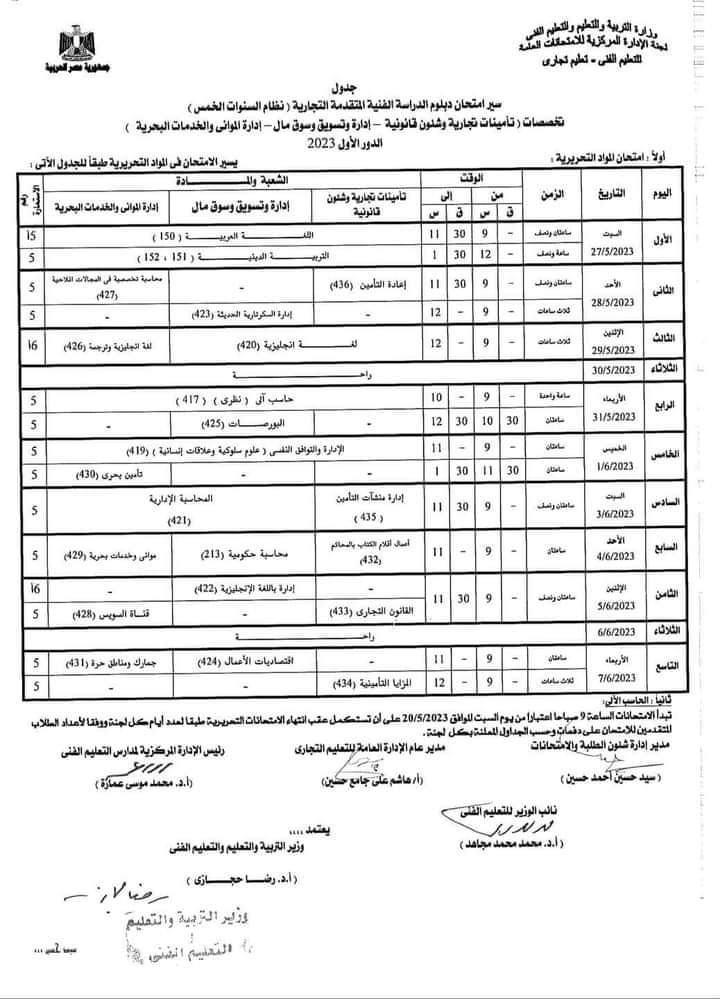 وزارة التربية والتعليم والتعليم الفنى
لجنة الإدارة المركزية للامتحانات العامة
للتعليم الفنى - تعليم تجارى
جمهورية مصر العربية
جدول
سير امتحان دبلوم الدراسة الفنية المتقدمة التجارية ( نظام السنوات الخمس )
تخصصات ( تأمينات تجارية وشئون قانونية - إدارة وتسويق وسوق مال - إدارة الموانى والخدمات البحرية )
الدور الأول 2023
أولاً : امتحان المواد التحريرية : يسير الامتحان فى المواد التحريرية طبقاً للجدول الأتى :
اليوم التاريخ الزمن الوقت الشعبة والمــــــادة رقم الاستمارة
من إلى تأمينات تجارية وشئون قانونية إدارة وتسويق وسوق مال إدارة الموانى والخدمات البحرية
ق س ق س
الأول السبت 27/5/2023 ساعتان ونصف - 9 30 11 اللغـــة العربيـــة ( 150 ) 15
ساعة ونصف - 12 30 1 التربيـــة الدينيـــة ( 151 ، 152 ) 5
الثانى الأحد 28/5/2023 ساعتان ونصف - 9 30 11 إعادة التأمين (436) - محاسبة تخصصية فى المجالات الملاحية (427) 5
ثلاث ساعات - 9 - 12 - إدارة السكرتارية الحديثة (423) - 5
الثالث الإثنين 29/5/2023 ثلاث ساعات - 9 - 12 لغـــة انجليزية (420) لغة انجليزية وترجمة (426) 16
الثلاثاء 30/5/2023 راحـــــة
الرابع الأربعاء 31/5/2023 ساعة واحدة - 9 - 10 حاسب آلى ( نظرى ) ( 417 ) 5
ساعتان 30 10 30 12 - البورصـــات (425) - 5
الخامس الخميس 1/6/2023 ساعتان - 9 - 11 الإدارة والتوافق النفسى ( علوم سلوكية وعلاقات إنسانية ) (419) 5
ساعتان 30 11 30 1 - - تأمين بحرى (430) 5
السادس السبت 3/6/2023 ساعتان ونصف - 9 30 11 إدارة منشآت التأمين ( 435 ) المحاسبة الإدارية (421) 5
السابع الأحد 4/6/2023 ساعتان - 9 - 11 أعمال أقلام الكتاب بالمحاكم (432) محاسبة حكومية (213) موانى وخدمات بحرية (429) 5
الثامن الإثنين 5/6/2023 ساعتان ونصف - 9 30 11 - إدارة باللغة الإنجليزية (422) - 16
القانون التجارى (433) - قناة السويس (428) 5
الثلاثاء 6/6/2023 راحـــــة
التاسع الأربعاء 7/6/2023 ساعتان - 9 - 11 - اقتصاديات الأعمال (424) جمارك ومناطق حرة (431) 5
ثلاث ساعات - 9 - 12 المزايا التأمينية (434) - - 5
ثانياً : الحاسب الألى :
تبدأ الامتحانات الساعة 9 صباحاً اعتباراً من يوم السبت الموافق 20/5/2023 على أن تستكمل عقب انتهاء الامتحانات التحريرية طبقاً لعدد أيام كل لجنة ووفقاً لأعداد الطلاب
المتقدمين للامتحان على دفعات وحسب الجداول المعلنة بكل لجنة .
مدير إدارة شئون الطلبة والامتحانات مدير عام الإدارة العامة للتعليم التجارى رئيس الإدارة المركزية لمدارس التعليم الفنى
( سيد حسين أحمد حسين ) (أ/ هاشم على جامع حسين) (أ.د. محمد موسى عمارة )
نائب الوزير للتعليم الفنى
(أ.د. محمد محمد مجاهد )
يعتمد ،،،،
وزير التربية والتعليم والتعليم الفنى
(أ.د. رضـا حجـــازى )
وزير التربية والتعليم
التعليم الفنى